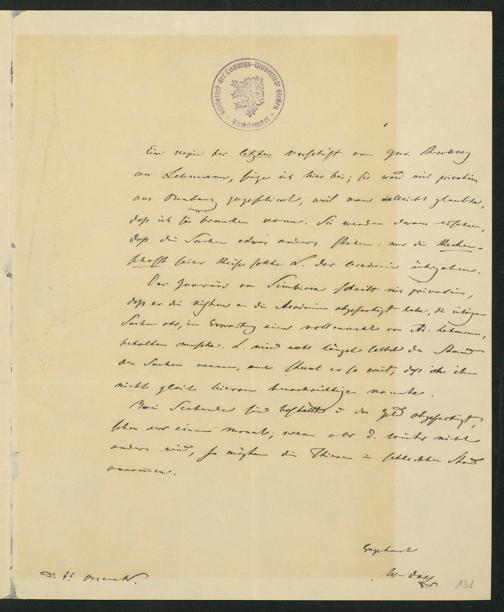 Bibliothek der Ludwigs-Universität Gießen
Eine copie der letzten Vorschrift vom
an Lehmann, füge ich hier bei; sie ward mir privatim
aus Orenburg zugefertigt, weil man vielleicht glaubte,
daß ich sie brauchen könne. Sie werden daraus ersehen,
daß die Sachen etwas anders stehen, nur die Rechen-
schaft seiner Reise sollte L. der Academie übergeben.
Der Gouverneur von Simbirsk schreibt mir privatim,
daß er die Kisten an die Academie abgefertigt habe, die übrigen
Sachen aber, in Erwartung einer Vollmacht von Al. Lehmann,
behalten mußte. L. wird wohl längst selbst den Stand
der Sachen kennen, und scheint es so weit, daß ich ihn
nicht gleich hievon benachrichtigen konnte.
Zwei sind bestellt u das Geld abgefertigt,
schon vor einem Monat; wenn aber d. Winter nicht
anders wird, so mögten die Thiere in schlechtem Stand
ankommen.
Ergebenst
W Dahl
131